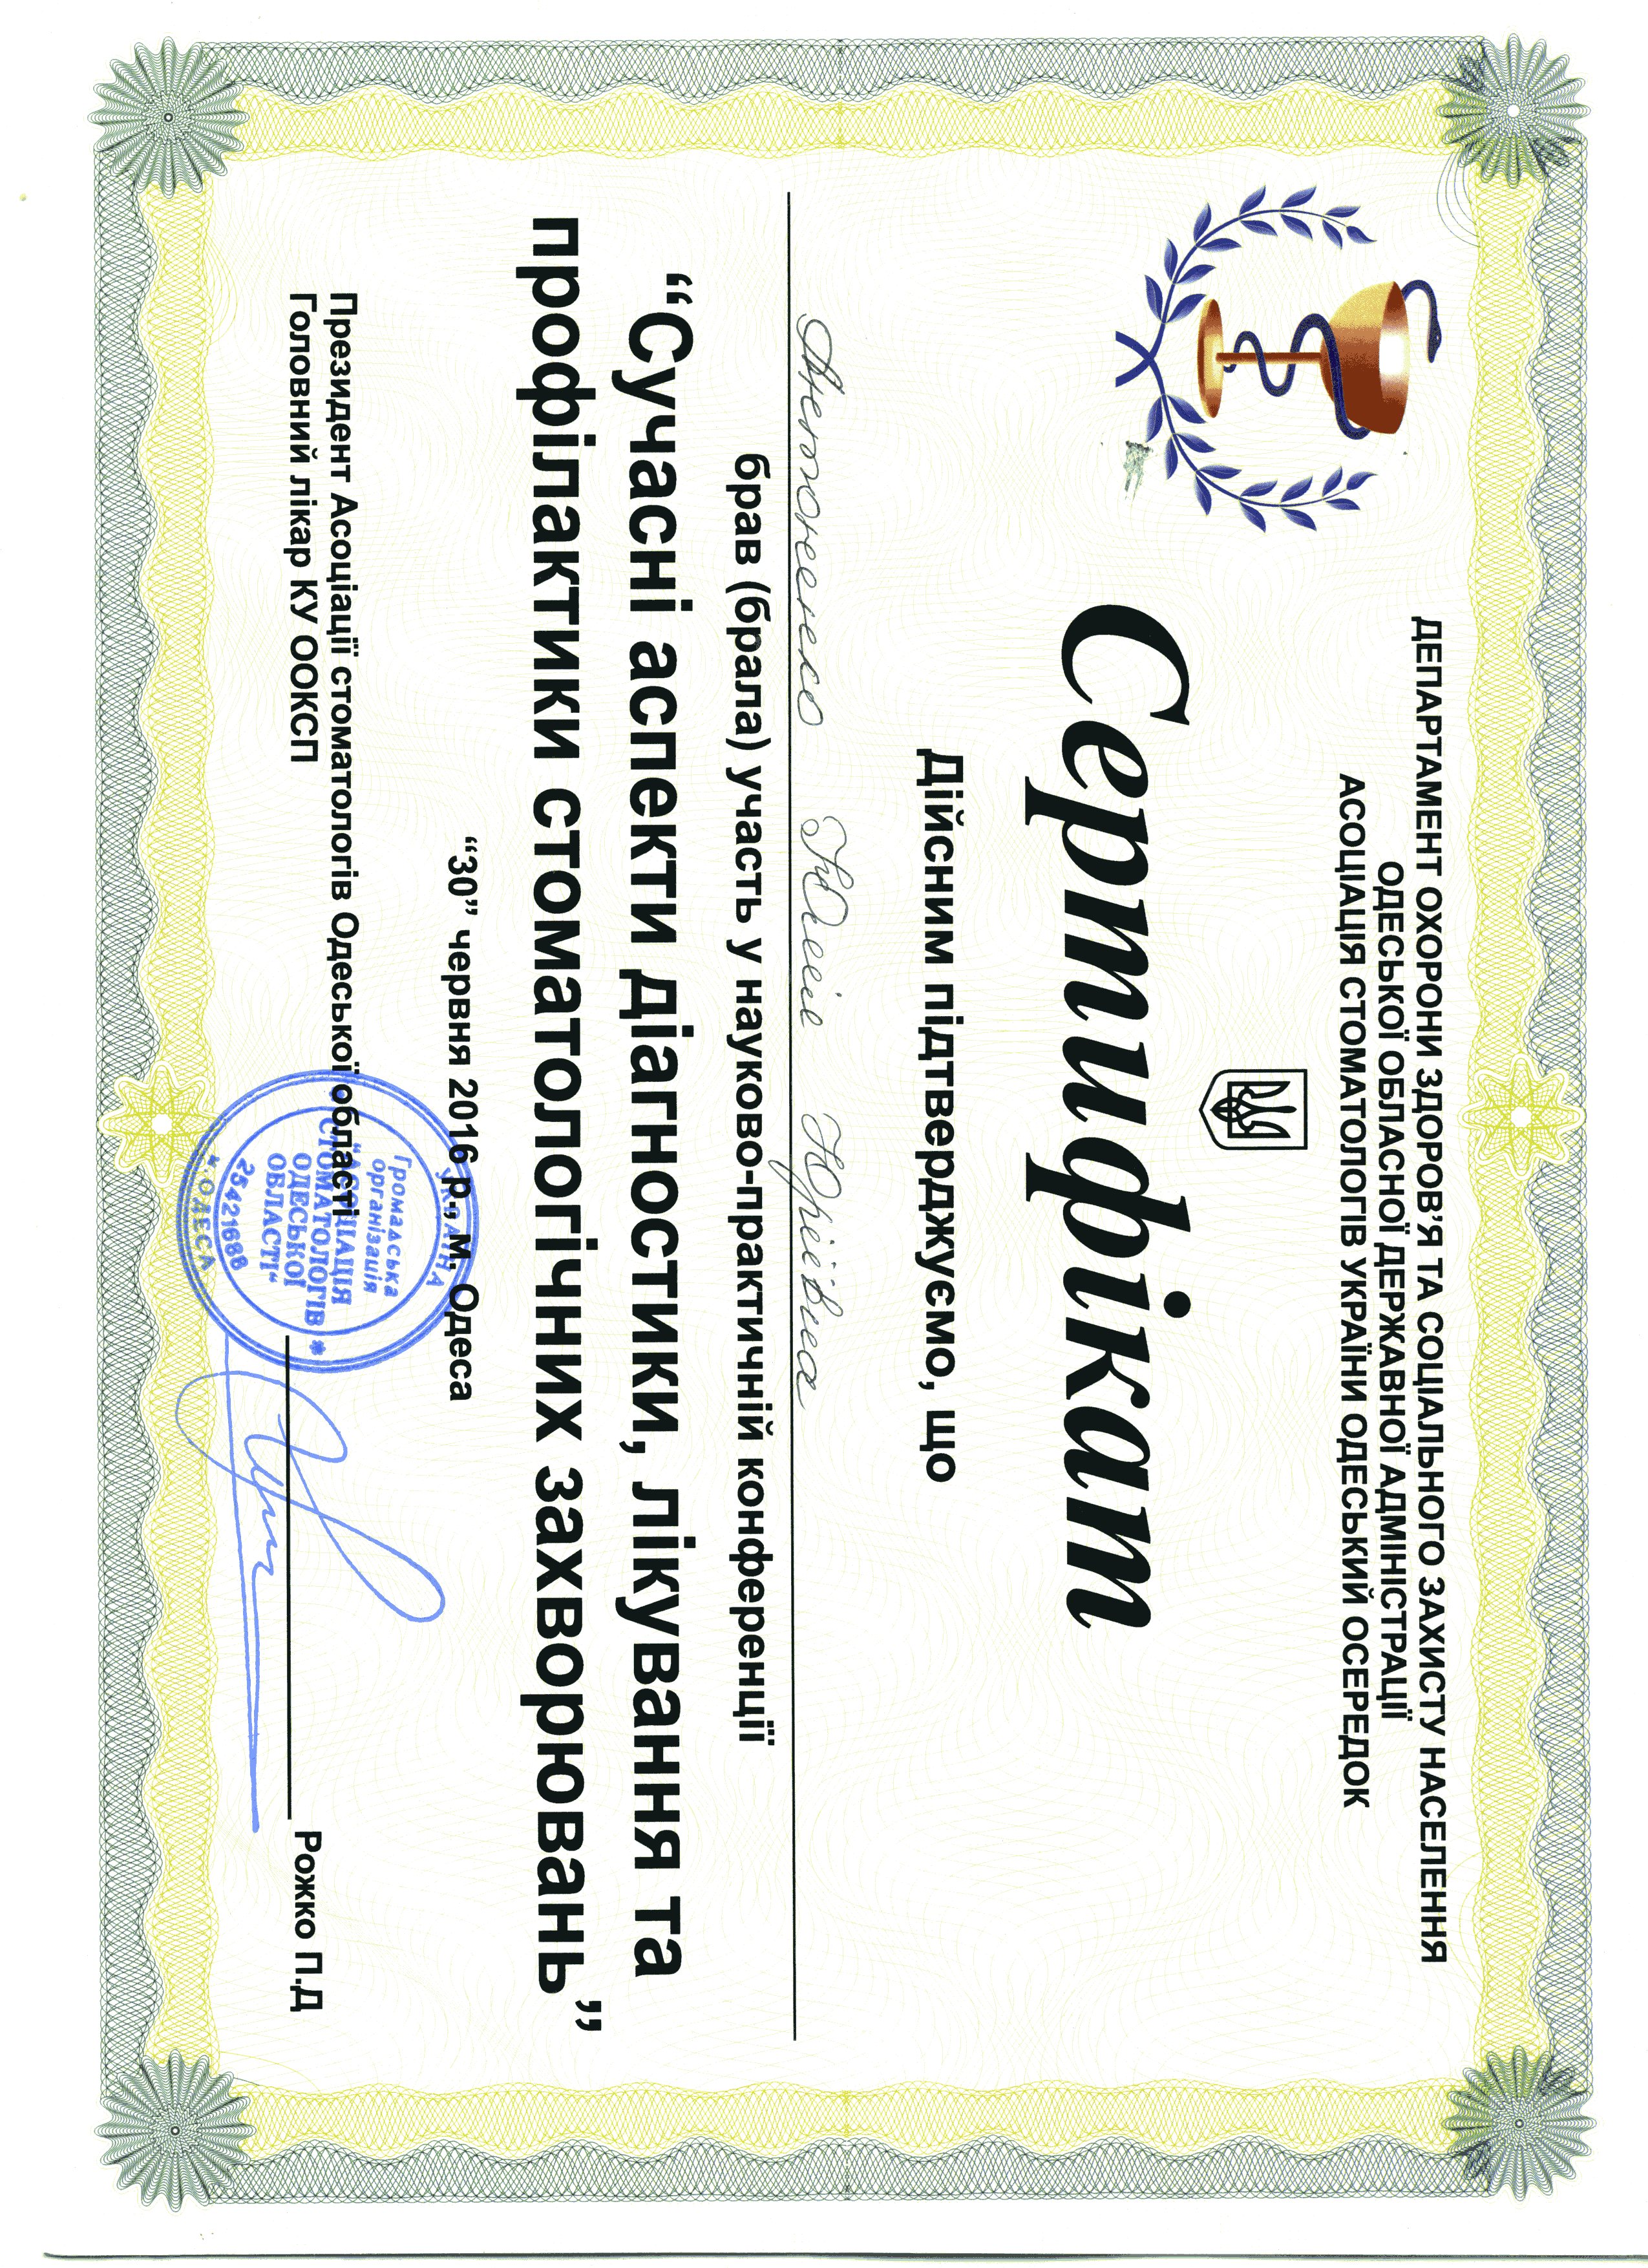 ДЕПАРТАМЕНТ ОХОРОНИ ЗДОРОВ’Я ТА СОЦІАЛЬНОГО ЗАХИСТУ НАСЕЛЕННЯ
ОДЕСЬКОЇ ОБЛАСНОЇ ДЕРЖАВНОЇ АДМІНІСТРАЦІЇ
АСОЦІАЦІЯ СТОМАТОЛОГІВ УКРАЇНИ ОДЕСЬКИЙ ОСЕРЕДОК
Сертифікат
Дійсним підтверджуємо, що
Антоненко Юлія Юріївна
брав (брала) участь у науково-практичній конференції
“Сучасні аспекти діагностики, лікування та
профілактики стоматологічних захворювань”
“30” червня 2016 р., м. Одеса
Президент Асоціації стоматологів Одеської області
Головний лікар КУ ООКСП
Рожко П.Д
УКРАЇНА
Громадська
організація
“АСОЦІАЦІЯ
СТОМАТОЛОГІВ
ОДЕСЬКОЇ
ОБЛАСТІ“
25421688
м.ОДЕСА